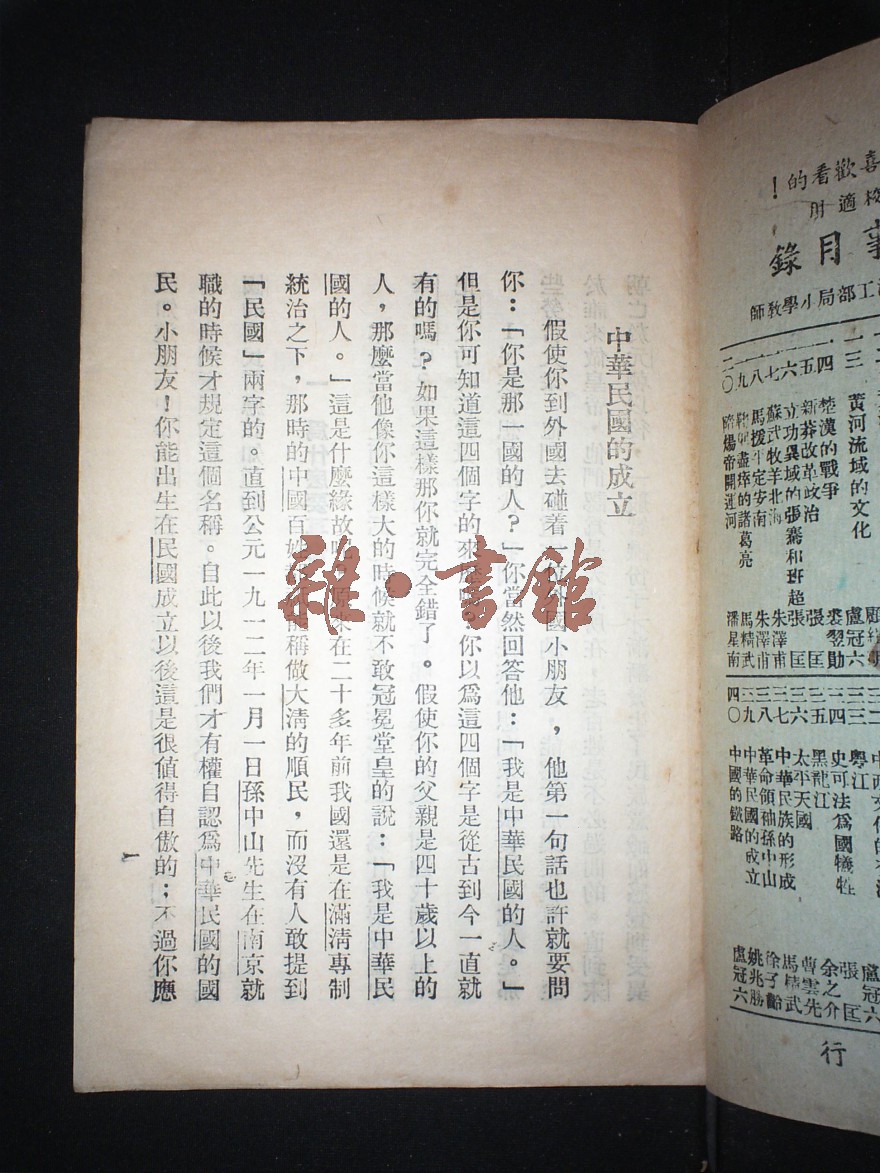 喜歡看的！
校適用
事目錄
工部局小學教師
一三 黃河流域的文化 盧冠六
一四 楚漢的戰爭 裘翌勛
一五 新莽改革政治 張匡
一六 立功異域的張騫和班超 張匡
一七 蘇武牧羊北海 朱澤甫
一八 馬援平定安南 朱澤甫
一九 鞠躬盡瘁的諸葛亮 馬精武
二〇 隋煬帝開運河 潘星南
三三 粵江 盧冠六
三四 史可法爲國犧牲 張匡
三五 黑龍江 余之介
三六 太平天國 曹雲先
三七 中華民族的形成 馬精武
三八 革命領袖孫中山 徐子齡
三九 中華民國的成立 姚兆勝
四〇 中國的鐵路 盧冠六
行
中華民國的成立
假使你到外國去碰着一位外國小朋友，他第一句話也許就要問
你：「你是那一國的人？」你當然回答他：「我是中華民國的人。」
但是你可知道這四個字的來歷嗎。你以爲這四個字是從古到今一直就
有的嗎？如果這樣那你就完全錯了。假使你的父親是四十歲以上的
人，那麼當他像你這樣大的時候就不敢冠冕堂皇的說：「我是中華民
國的人。」這是什麼緣故呢？原來在二十多年前我國還是在滿清專制
統治之下，那時的中國百姓都稱做大淸的順民，而沒有人敢提到
「民國」兩字的。直到公元一九一二年一月一日孫中山先生在南京就
職的時候才規定這個名稱。自此以後我們才有權自認爲中華民國的國
民。小朋友！你能出生在民國成立以後這是很値得自傲的；不過你應
一
雜·書館